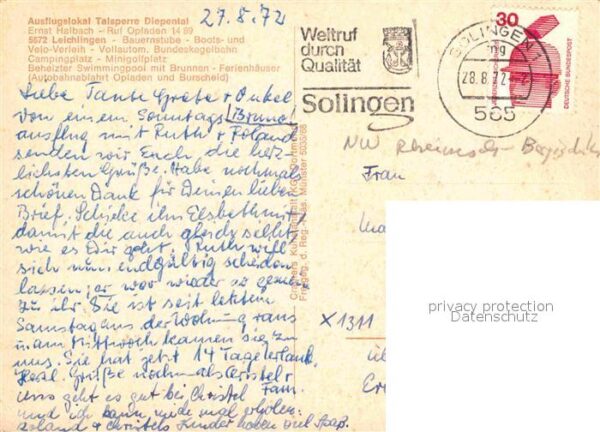 27.8.72
Ausflugslokal Talsperre Diepental
Ernst Halbach - Ruf Opladen 14 89
5672 Leichlingen - Bauernstube - Boots- und
Velo-Verleih - Vollautom. Bundeskegelbahn
Campingplatz - Minigolfplatz
Beheizter Swimmingpool mit Brunnen - Ferienhäuser
(Autobahnabfahrt Opladen und Burscheid)
Liebe Tante Grete + Onkel
Bruno
von einem Sonntags
ausflug mit Ruth + Roland
senden wir Euch die herz
lichsten Grüße. Habe nochmals
schönen Dank für Deinen lieben
Brief. Schicke ihn Elsbeth mit
damit die auch gleich selbst
wie es Dir geht. Ruth will
sich nun endgültig scheiden
lassen, er war wieder so gemein
zu ihr. Sie ist seit letztem
Samstag aus der Wohnung raus
u. am Mittwoch kamen sie zu
uns. Sie hat jetzt 14 Tage
Grüße noch als
es gut bei Christel
und ich kann mal
Roland + Christels Kinder haben viel Spaß.
Weltruf
durch
Qualität
Solingen
SOLINGEN 1
mg
28.8.72
565
30
DEUTSCHE BUNDESPOST
NW Rheinisch-Bergischer
Frau
X 1311
privacy protection
Datenschutz